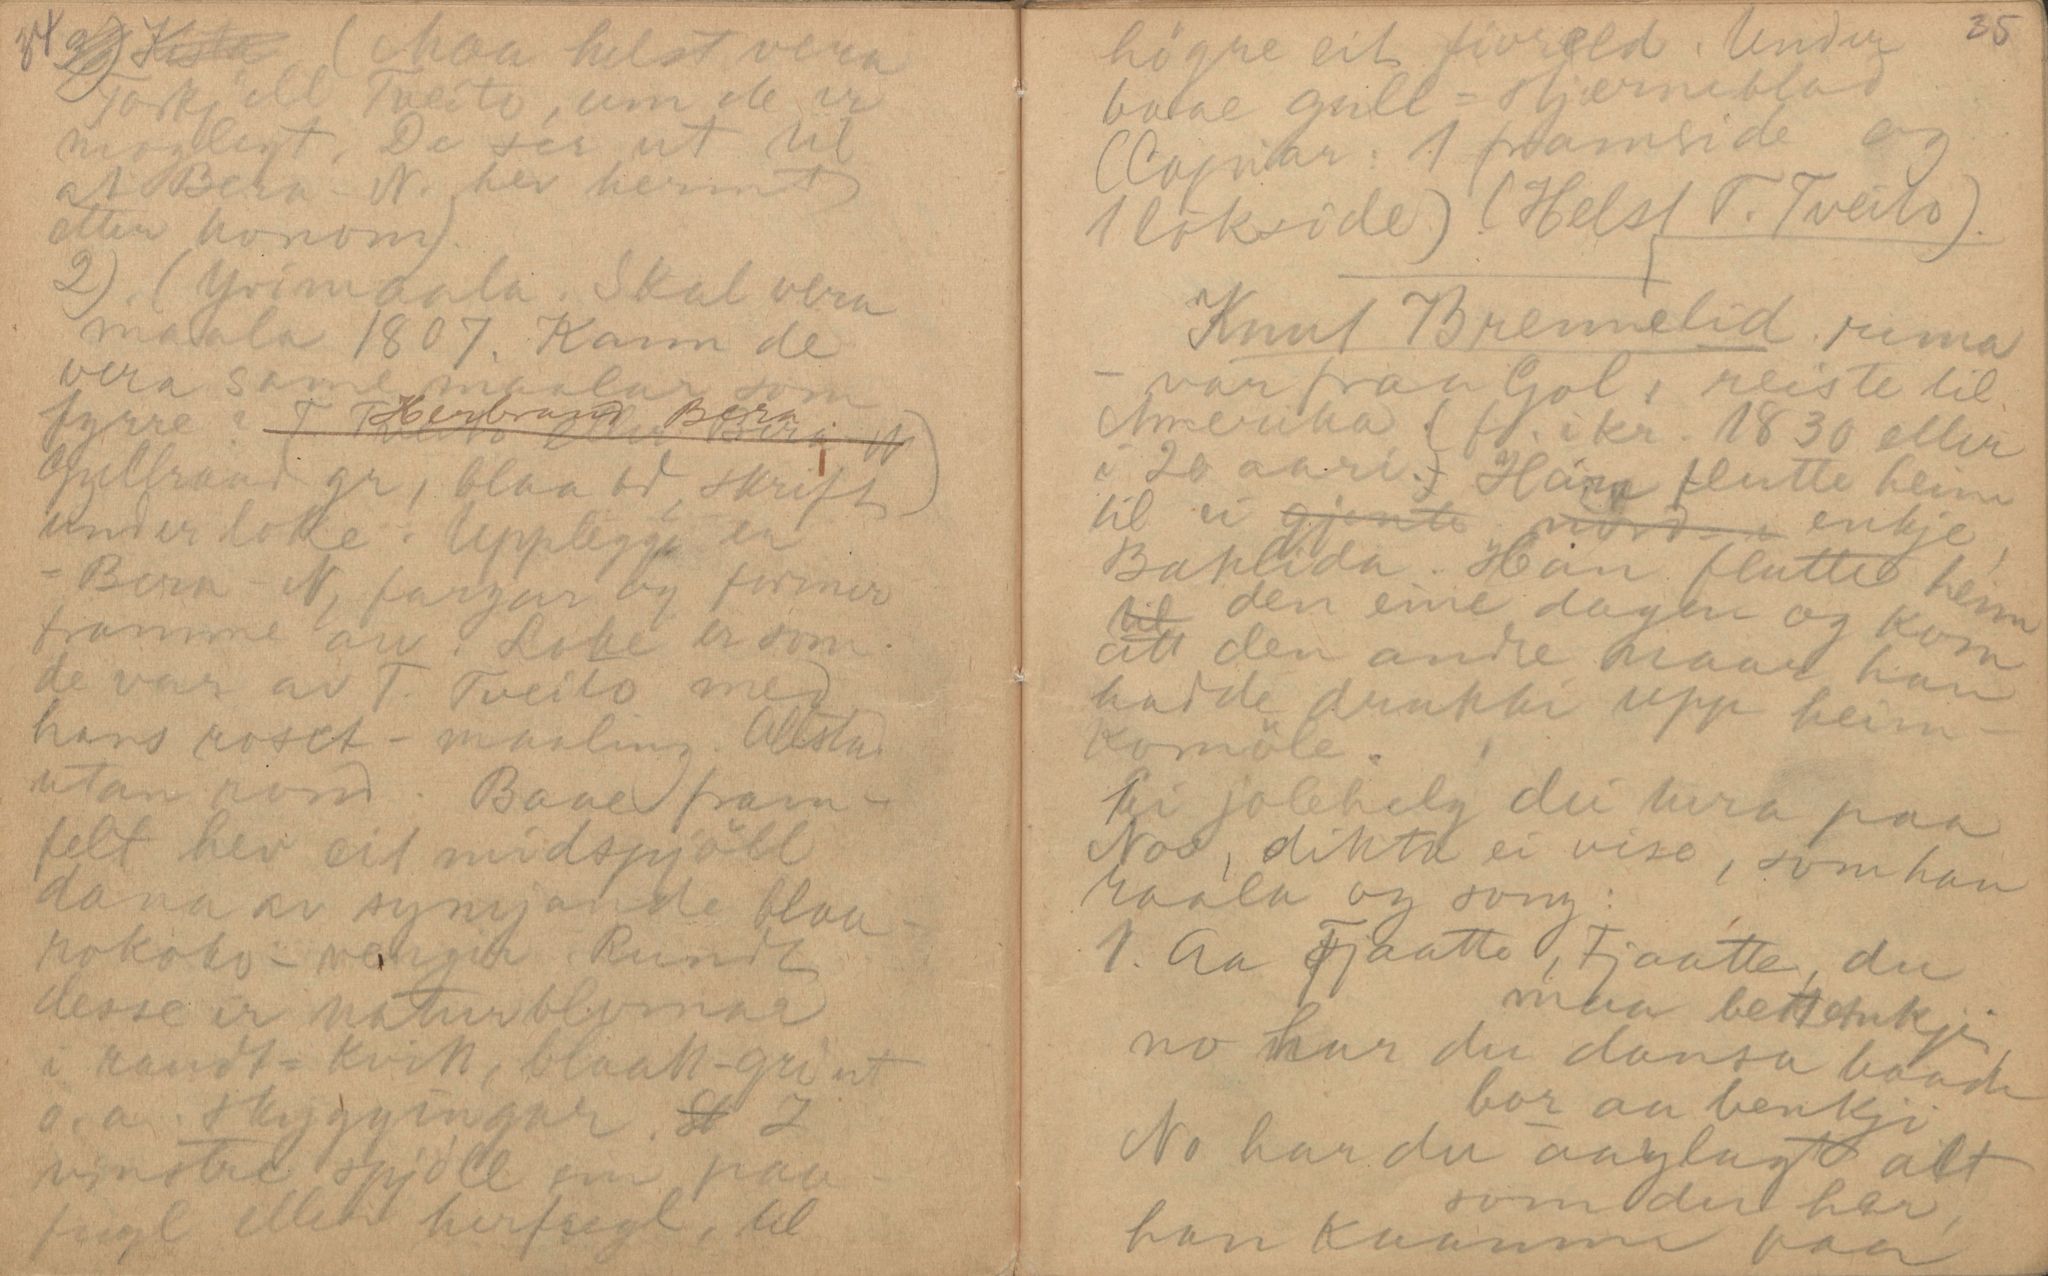 34
3) Kista (Maa helst vera
Torkjell Tveito, um de er
moglegt. De ser ut til
at Bera-N. hev hermt
etter honom).
2). (Yvimaala. Skal vera
maala 1807. Kann de
vera same maalar som
fyrre? (T. Tveito eller Bera-N)
Herbrand Bera
Gullraad gr, blaa bd, skrift
under loke. Upplegg er
-Bera-N, fargar og former
framme av. Loke er som
de var av T. Tveito med
hans roset-maaling. Altsaa
utan rond. Baae fram-
felt hev eit midspjöll
dana av synjande blaa-
rokoko-vengir. Rundt
desse er naturblomar
i raudt-kvitt, blaatt-grönt
o.a. skyggingar. I
vinstre spjöll ein paa-
fugl eller herfugl, til
35
högre eit fivreld. Under
baae gull-stjerneblad
(Copiar: 1 framside og
1 lokside) (Helst T. Tveito).
Knut Brennelid rima
- var fraa Gol, reiste til
Amerika (f. ikr. 1830 eller
i 20 aari.) Han flutte heim
til ei gjente nord i enkje,
Baklida. Han flutte heim
til den eine dagen og kom
att den andre naar han
hadde drukki upp heim-
komöle.
Ei jolehelg dei tura paa
Noo, dikta ei vise, som han
raala og song:
1. Aa Tjaatte, Tjaatte, du
maa bettenkji,
no har du dansa baade
bor aa benkji
No har du öaylagt alt
som du har,
han kaamme paa